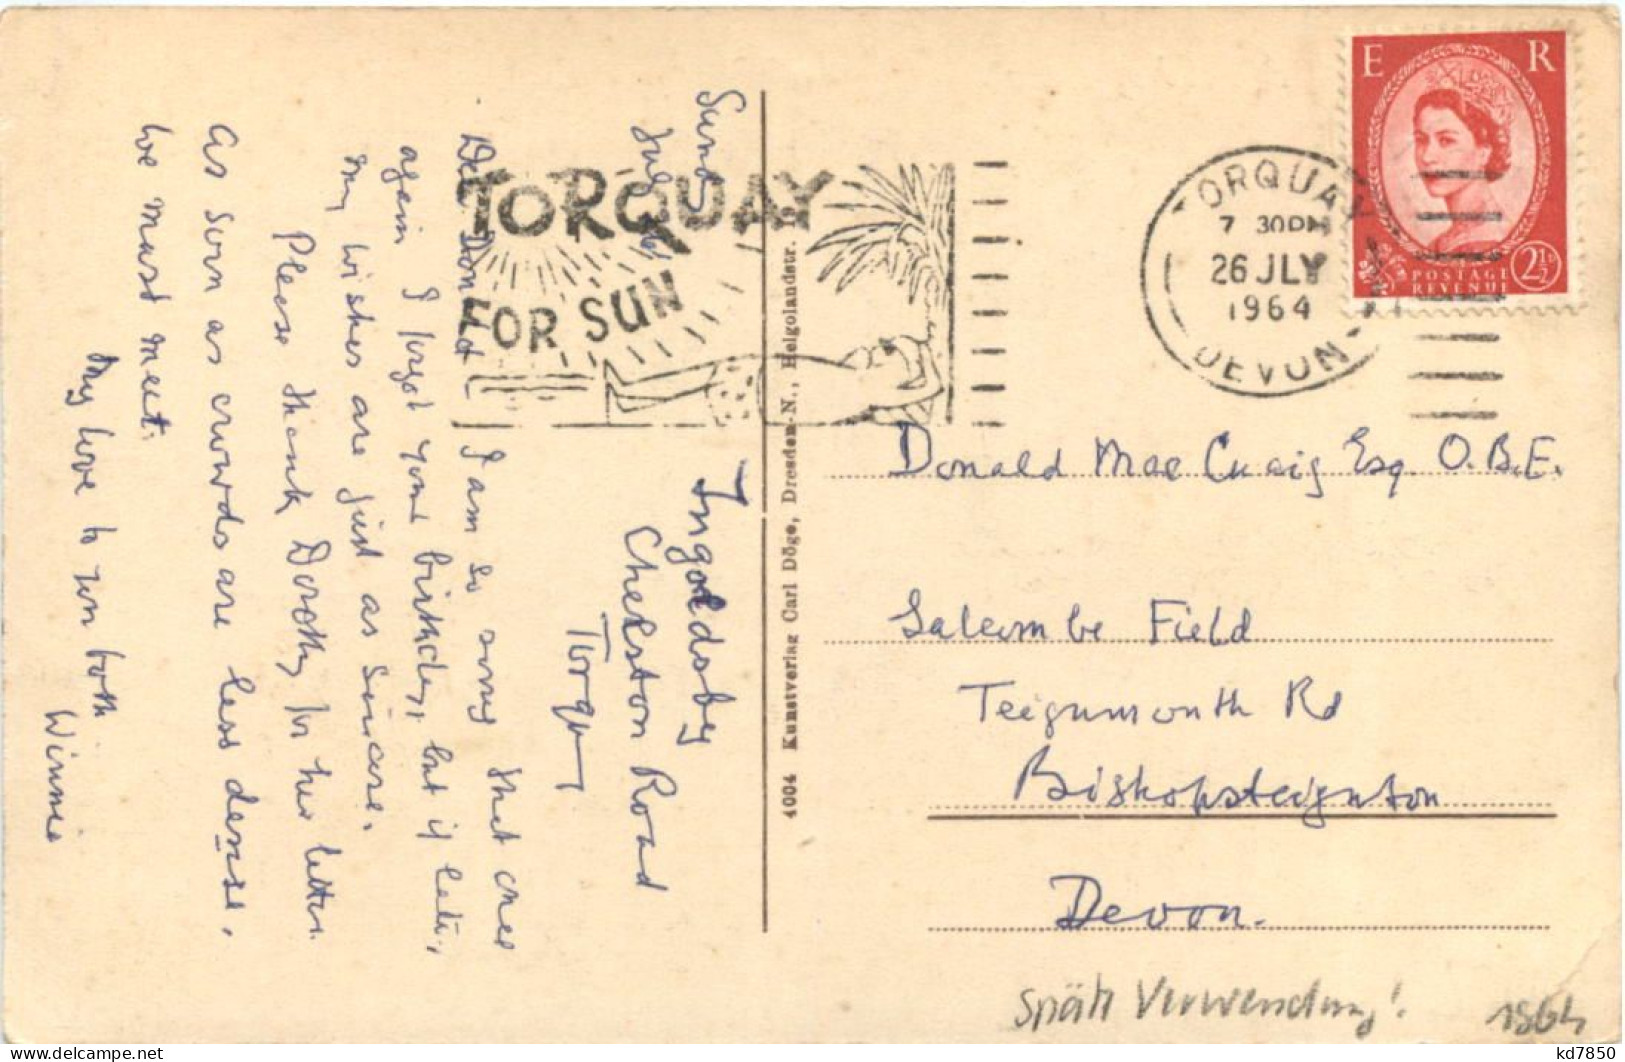 Sund
July 26
Ingoldsby
Chelston Road
Torquay
Dear Donald I am so sorry that once
again I forgot your birthday, but if late,
my wishes are just as sincere.
Please thank Dorothy for her letter.
As soon as crowds are less dense,
we must meet.
My love to you both
Winnie
TORQUAY
FOR SUN
4004 Kunstverlag Carl Döge, Dresden-N., Helgolandstr.
TORQUAY
7 30PM
26 JLY
1964
DEVON
E R
POSTAGE
REVENUE
2½
Donald MacCuaig Esq O.B.E.
Salcombe Field
Teignmouth Rd
Bishopsteignton
Devon.
späte Verwendung!
1964
kd7850